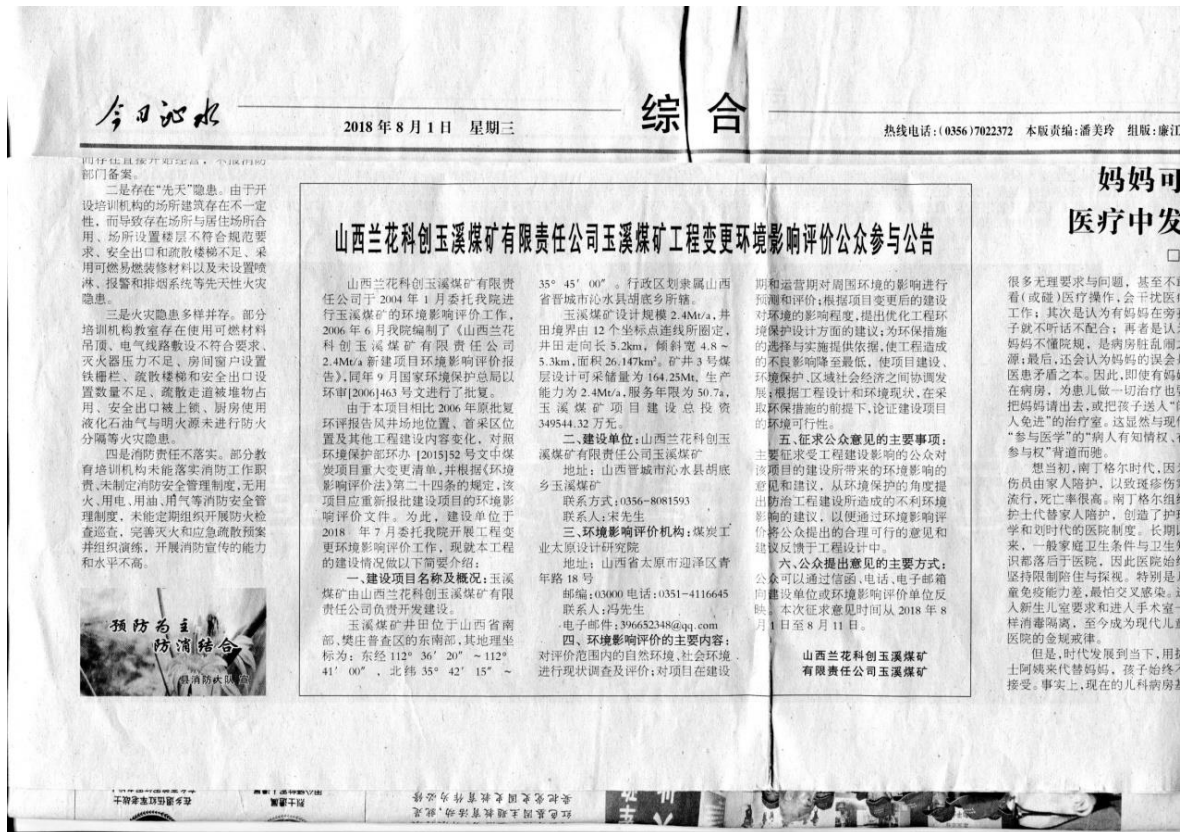 今日沁水
2018年8月1日 星期三
综合
热线电话:(0356)7022372 本版责编:潘美玲 组版:廉江
部门备案。
二是存在“先天”隐患。由于开
设培训机构的场所建筑存在不一定
性,而导致存在场所与居住场所合
用、场所设置楼层不符合规范要
求、安全出口和疏散楼梯不足、采
用可燃易燃装修材料以及未设置喷
淋、报警和排烟系统等先天性火灾
隐患。
三是火灾隐患多样并存。部分
培训机构教室存在使用可燃材料
吊顶、电气线路敷设不符合要求、
灭火器压力不足、房间窗户设置
铁栅栏、疏散楼梯和安全出口设
置数量不足、疏散走道被堆物占
用、安全出口被上锁、厨房使用
液化石油气与明火源未进行防火
分隔等火灾隐患。
四是消防责任不落实。部分教
育培训机构未能落实消防工作职
责、未制定消防安全管理制度,无用
火、用电、用油、用气等消防安全管
理制度,未能定期组织开展防火检
查巡查,完善灭火和应急疏散预案
并组织演练,开展消防宣传的能力
和水平不高。
预防为主
防消结合
县消防大队 宣
山西兰花科创玉溪煤矿有限责任公司玉溪煤矿工程变更环境影响评价公众参与公告
山西兰花科创玉溪煤矿有限责
任公司于2004年1月委托我院进
行玉溪煤矿的环境影响评价工作,
2006年6月我院编制了《山西兰花
科创玉溪煤矿有限责任公司
2.4Mt/a新建项目环境影响评价报
告》,同年9月国家环境保护总局以
环审[2006]463号文进行了批复。
由于本项目相比2006年原批复
环评报告风井场地位置、首采区位
置及其他工程建设内容变化,对照
环境保护部环办[2015]52号文中煤
炭项目重大变更清单,并根据《环境
影响评价法》第二十四条的规定,该
项目应重新报批建设项目的环境影
响评价文件。为此,建设单位于
2018年7月委托我院开展工程变
更环境影响评价工作,现就本工程
的建设情况做以下简要介绍:
一、建设项目名称及概况:玉溪
煤矿由山西兰花科创玉溪煤矿有限
责任公司负责开发建设。
玉溪煤矿井田位于山西省南
部,樊庄普查区的东南部,其地理坐
标为:东经112°36′20″~112°
41′00″,北纬35°42′15″~
35°45′00″。行政区划隶属山西
省晋城市沁水县胡底乡所辖。
玉溪煤矿设计规模2.4Mt/a,井
田境界由12个坐标点连线所圈定,
井田走向长5.2km,倾斜宽4.8~
5.3km,面积26.147km²。矿井3号煤
层设计可采储量为164.25Mt,生产
能力为2.4Mt/a,服务年限为50.7a,
玉溪煤矿项目建设总投资
349544.32万元。
二、建设单位:山西兰花科创玉
溪煤矿有限责任公司玉溪煤矿
地址:山西晋城市沁水县胡底
乡玉溪煤矿
联系方式:0356-8081593
联系人:宋先生
三、环境影响评价机构:煤炭工
业太原设计研究院
地址:山西省太原市迎泽区青
年路18号
邮编:03000 电话:0351-4116645
联系人:冯先生
电子邮件:396652348@qq.com
四、环境影响评价的主要内容:
对评价范围内的自然环境、社会环境
进行现状调查及评价;对项目在建设
期和运营期对周围环境的影响进行
预测和评价;根据项目变更后的建设
对环境的影响程度,提出优化工程环
境保护设计方面的建议;为环保措施
的选择与实施提供依据,使工程造成
的不良影响降至最低,使项目建设、
环境保护、区域社会经济之间协调发
展;根据工程设计和环境现状,在采
取环保措施的前提下,论证建设项目
的环境可行性。
五、征求公众意见的主要事项:
主要征求受工程建设影响的公众对
该项目的建设所带来的环境影响的
意见和建议,从环境保护的角度提
出防治工程建设所造成的不利环境
影响的建议,以便通过环境影响评
价将公众提出的合理可行的意见和
建议反馈于工程设计中。
六、公众提出意见的主要方式:
公众可以通过信函、电话、电子邮箱
向建设单位或环境影响评价单位反
映。本次征求意见时间从2018年8
月1日至8月11日。
山西兰花科创玉溪煤矿
有限责任公司玉溪煤矿
妈妈可
医疗中发
很多无理要求与问题,甚至不
看(或碰)医疗操作,会干扰医
工作;其次是认为有妈妈在旁
子就不听话不配合;再者是认
妈妈不懂院规,是病房脏乱闹
源;最后,还会认为妈妈的误会
医患矛盾之本。因此,即使有妈
在病房,为患儿做一切治疗也
把妈妈请出去,或把孩子送人“
人免进”的治疗室。这显然与现
“参与医学”的“病人有知情权、
参与权”背道而驰。
想当初,南丁格尔时代,因
伤员由家人陪护,以致斑疹伤
流行,死亡率很高。南丁格尔组
护士代替家人陪护,创造了护
学和划时代的医院制度。长期
来,一般家庭卫生条件与卫生
识都落后于医院,因此医院始
坚持限制陪住与探视。特别是
童免疫能力差,最怕交叉感染。
人新生儿室要求和进入手术室
样消毒隔离,至今成为现代儿
医院的金规戒律。
但是,时代发展到当下,用
士阿姨来代替妈妈,孩子始终
接受。事实上,现在的儿科病房